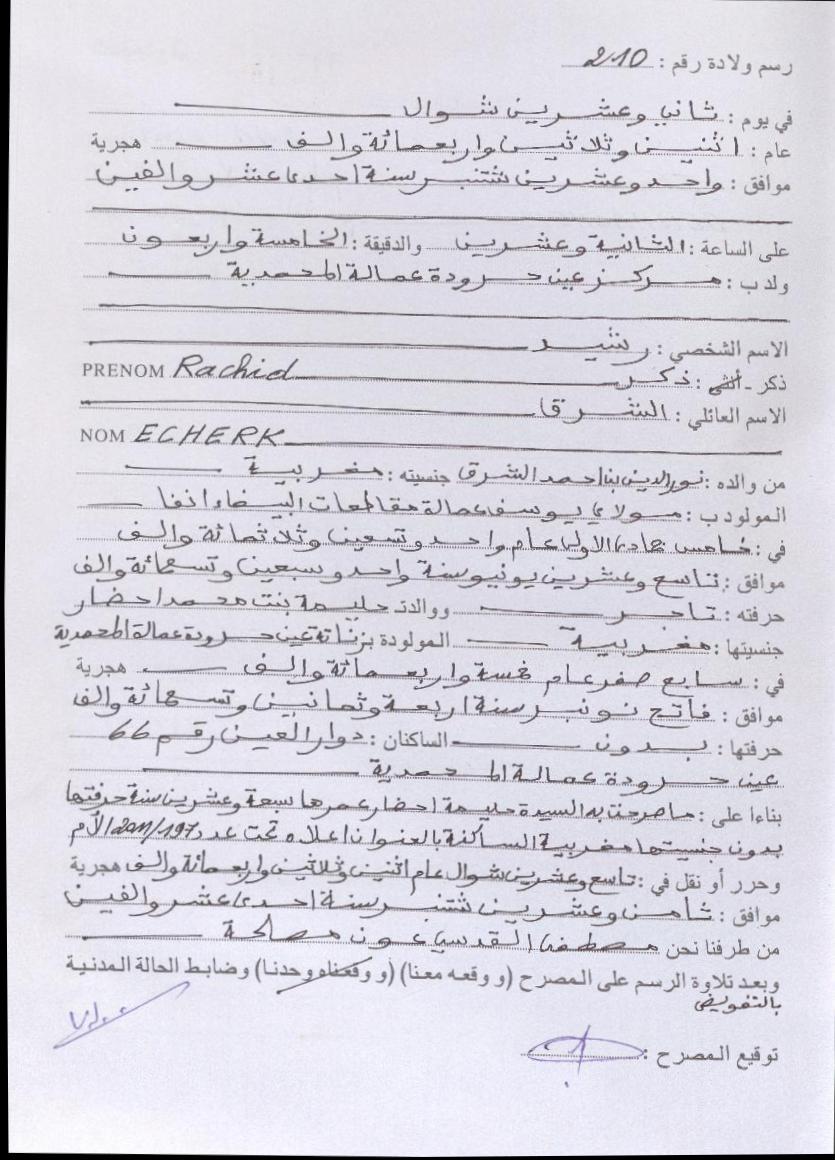 رسم ولادة رقم : 210
في يوم : ثاني وعشرين شوال
عام : اثنين وثلاثين واربعمائة والف هجرية
موافق : واحد وعشرين شتنبر سنة احدى عشر والفين
على الساعة : الثانية وعشرين والدقيقة : الخامسة واربعون
ولد ب : مركز عين حرودة عمالة المحمدية
الاسم الشخصي : رشيد
ذكر - أنثى : ذكر PRENOM Rachid
الاسم العائلي : الشرق
NOM ECHERK
من والده : نورالدين بن احمد الشرق جنسيته : مغربية
المولود ب : مولاي يوسف عمالة مقاطعات البيضاء انفا
في : خامس جمادى الاولى عام واحد وتسعين وثلاثمائة والف
موافق : تاسع وعشرين يونيو سنة واحد وسبعين وتسعمائة والف
حرفته : تاجر ووالدته حليمة بنت محمد احضار
جنسيتها : مغربية المولودة بزناتة عين حرودة عمالة المحمدية
في : سابع صفر عام خمسة واربعمائة والف هجرية
موافق : فاتح نونبر سنة اربعة وثمانين وتسعمائة والف
حرفتها : بدون الساكنان : دوار العين رقم 66
عين حرودة عمالة المحمدية
بناءا على : ما صرحت به السيدة حليمة احضار عمرها سبعة وعشرين سنة حرفتها
بدون جنسيتها مغربية الساكنة بالعنوان اعلاه تحت عدد 2011/197 الأم
وحرر أو نقل في : تاسع وعشرين شوال عام اثنين وثلاثين واربعمائة والف هجرية
موافق : ثامن وعشرين شتنبر سنة احدى عشر والفين
من طرفنا نحن مصطفى القدسي عون مصالحة
وبعد تلاوة الرسم على المصرح (و وقعه معنا) (و وقعناه وحدنا) وضابط الحالة المدنية
بالتفويض
توقيع المصرح :